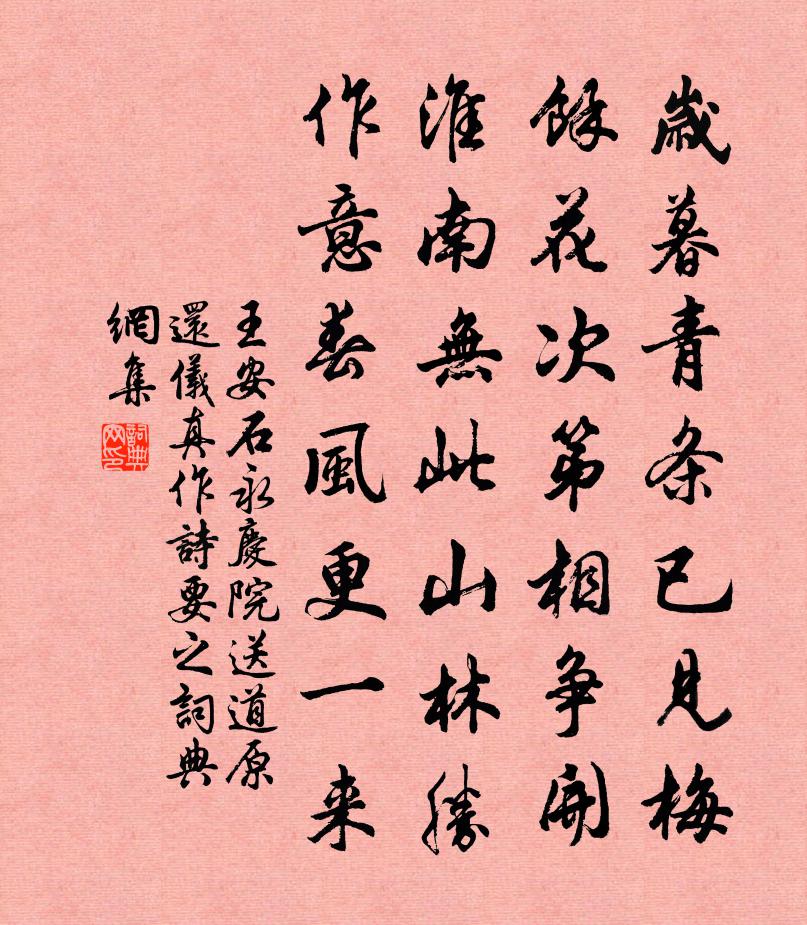 歲暮青条已見梅
餘花次第相争開
淮南無此山林勝
作意春風更一来
王安石永慶院送道原
還儀真作詩要之詞典
網集
詞典
网印